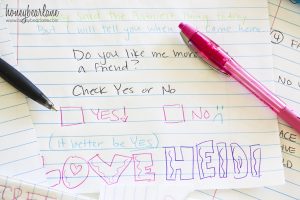 honeybearlane
But I will tell you when I came home.
Do you like me more
a friend?
Check Yes or No
YES! NO
(it better be YES)
LOVE HEIDI